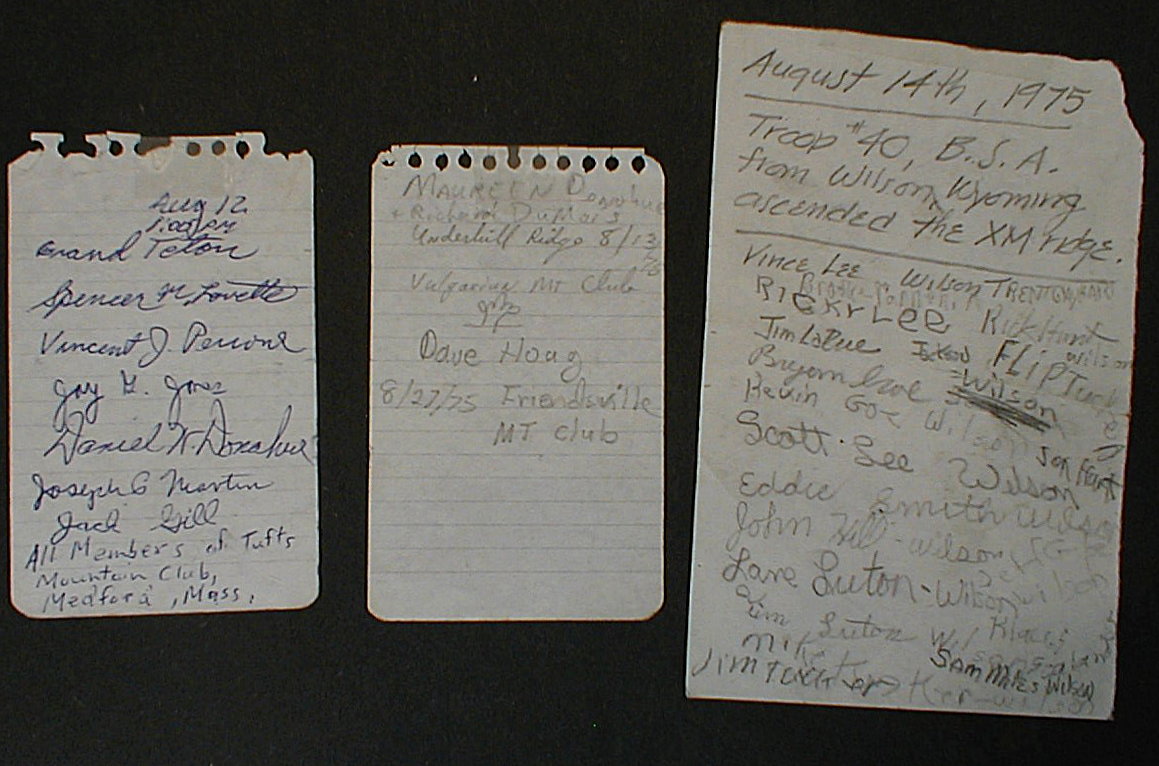 Aug 12
1:00 PM
Grand Teton
Spencer M. Lovette
Vincent J. Perrone
Jay G.
Daniel W. Donahue
Joseph G Martin
Jack Gill
All Members of Tufts
Mountain Club,
Medford, Mass.
MAUREEN Donohue
+ Richard DuMais
Underhill Ridge 8/13
Vulgarian Mt Club
Dave Hoag
8/27/75 Friendsville
MT Club
August 14th, 1975
Troop #40, B.S.A.
from Wilson, Wyoming
ascended the XM ridge.
VINCE LEE - WILSON TRENTON HART
RICKY LEE Rick Hunt wilson
Jim LaRue FLIP Tucker
Bryan Wilson
Kevin Goe Wilson Jon Hart
Scott See Wilson
Eddie Smith Wilson
John Hill - wilson
Lane Luton - Wilson
Jim Luton Wilson
SAM MILES WILSON
JIM TUCKER